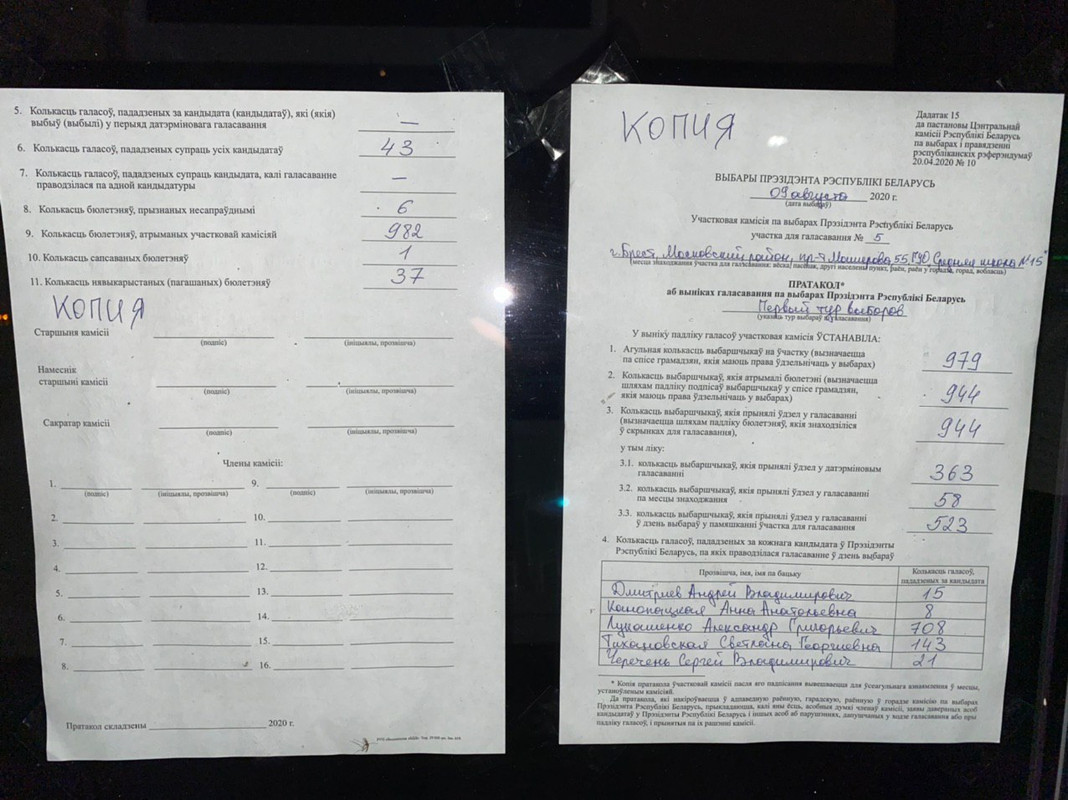 5. Колькасць галасоў, пададзеных за кандыдата (кандыдатаў), які (якія)
выбыў (выбылі) у перыяд датэрміновага галасавання —
6. Колькасць галасоў, пададзеных супраць усіх кандыдатаў 43
7. Колькасць галасоў, пададзеных супраць кандыдата, калі галасаванне
праводзілася па адной кандыдатуры —
8. Колькасць бюлетэняў, прызнаных несапраўднымі 6
9. Колькасць бюлетэняў, атрыманых участковай камісіяй 982
10. Колькасць сапсаваных бюлетэняў 1
11. Колькасць нявыкарыстаных (пагашаных) бюлетэняў 37
КОПИЯ
Старшыня камісіі
(подпіс) (ініцыялы, прозвішча)
Намеснік
старшыні камісіі
(подпіс) (ініцыялы, прозвішча)
Сакратар камісіі
(подпіс) (ініцыялы, прозвішча)
Члены камісіі:
1. 9.
(подпіс) (ініцыялы, прозвішча) (подпіс) (ініцыялы, прозвішча)
2. 10.
3. 11.
4. 12.
5. 13.
6. 14.
7. 15.
8. 16.
Пратакол складзены 2020 г.
КОПИЯ
Дадатак 15
да пастановы Цэнтральнай
камісіі Рэспублікі Беларусь
па выбарах і правядзенні
рэспубліканскіх рэферэндумаў
20.04.2020 № 10
ВЫБАРЫ ПРЭЗІДЭНТА РЭСПУБЛІКІ БЕЛАРУСЬ
09 августа 2020 г.
(дата выбараў)
Участковая камісія па выбарах Прэзідэнта Рэспублікі Беларусь
участка для галасавання № 5
г. Брест, Московский район, пр-т Машерова, 55, ГУО "Средняя школа №15"
(месца знаходжання ўчастка для галасавання: вёска, пасёлак, другі населены пункт, раён, раён у горадзе, горад, вобласць)
ПРАТАКОЛ*
аб выніках галасавання па выбарах Прэзідэнта Рэспублікі Беларусь
Первый тур выборов
(указаць тур выбараў галасавання)
У выніку падліку галасоў участковая камісія ЎСТАНАВІЛА:
1. Агульная колькасць выбаршчыкаў на ўчастку (вызначаецца
па спісе грамадзян, якія маюць права ўдзельнічаць у выбарах) 979
2. Колькасць выбаршчыкаў, якія атрымалі бюлетэні (вызначаецца
шляхам падліку подпісаў выбаршчыкаў у спісе грамадзян,
якія маюць права ўдзельнічаць у выбарах) 944
3. Колькасць выбаршчыкаў, якія прынялі ўдзел у галасаванні
(вызначаецца шляхам падліку бюлетэняў, якія знаходзіліся
ў скрынках для галасавання), 944
у тым ліку:
3.1. колькасць выбаршчыкаў, якія прынялі ўдзел у датэрміновым
галасаванні 363
3.2. колькасць выбаршчыкаў, якія прынялі ўдзел у галасаванні
па месцы знаходжання 58
3.3. колькасць выбаршчыкаў, якія прынялі ўдзел у галасаванні
ў дзень выбараў у памяшканні ўчастка для галасавання 523
4. Колькасць галасоў, пададзеных за кожнага кандыдата ў Прэзідэнты
Рэспублікі Беларусь, па якіх праводзілася галасаванне ў дзень выбараў
Прозвішча, імя, імя па бацьку Колькасць галасоў,
пададзеных за кандыдата
Дмитриев Андрей Владимирович 15
Канопацкая Анна Анатольевна 8
Лукашенко Александр Григорьевич 708
Тихановская Светлана Георгиевна 143
Черечень Сергей Владимирович 21
* Копія пратакола ўчастковай камісіі пасля яго падпісання вывешваецца для ўсеагульнага азнаямлення ў месцы,
устаноўленым камісіяй.
Да пратакола, які накіроўваецца ў адпаведную раённую, гарадскую, раённую ў горадзе камісію па выбарах
Прэзідэнта Рэспублікі Беларусь, прыкладаюцца, калі яны ёсць, асобныя думкі членаў камісіі, заявы давераных асоб
кандыдатаў у Прэзідэнты Рэспублікі Беларусь і іншых асоб аб парушэннях, дапушчаных у ходзе галасавання або пры
падліку галасоў, і прынятыя па іх рашэнні камісіі.